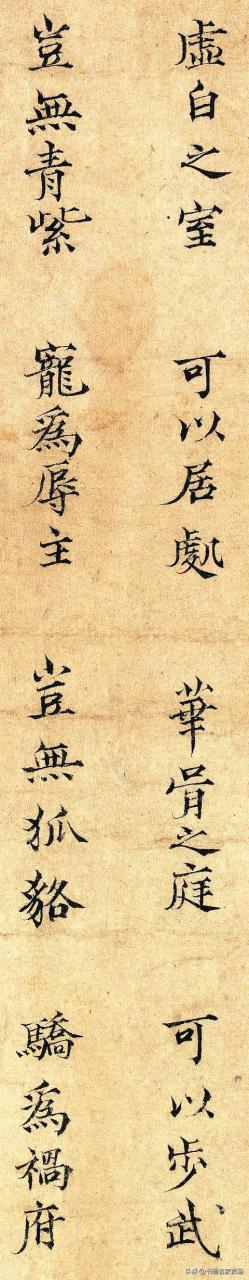 虛白之室 可以居處 華胥之庭 可以步武
豈無青紫 寵爲辱主 豈無狐貉 驕爲禍府
头条 @书画名家